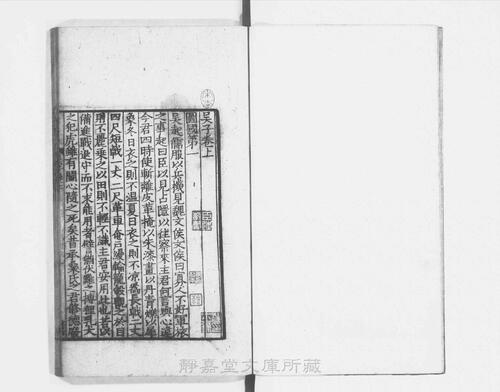 吳子卷上
圖國第一
吳起儒服以兵機見魏文侯文侯曰寡人不好軍旅
之事起曰臣以見占隱以往察來主君何言與心違
今君四時使斬離皮革掩以朱漆畫以丹青爍以犀
象冬日衣之則不溫夏日衣之則不凉爲長戟二丈
四尺短戟一丈二尺革車奄戶縵輪籠轂觀之於目
則不麗乘之以田則不輕不識主君安用此也若以
備進戰退守而不求能用者譬猶伏雞之搏狸乳犬
之犯虎雖有鬭心隨之死矣昔承桑氏之君脩德廢
靜嘉堂文庫所藏